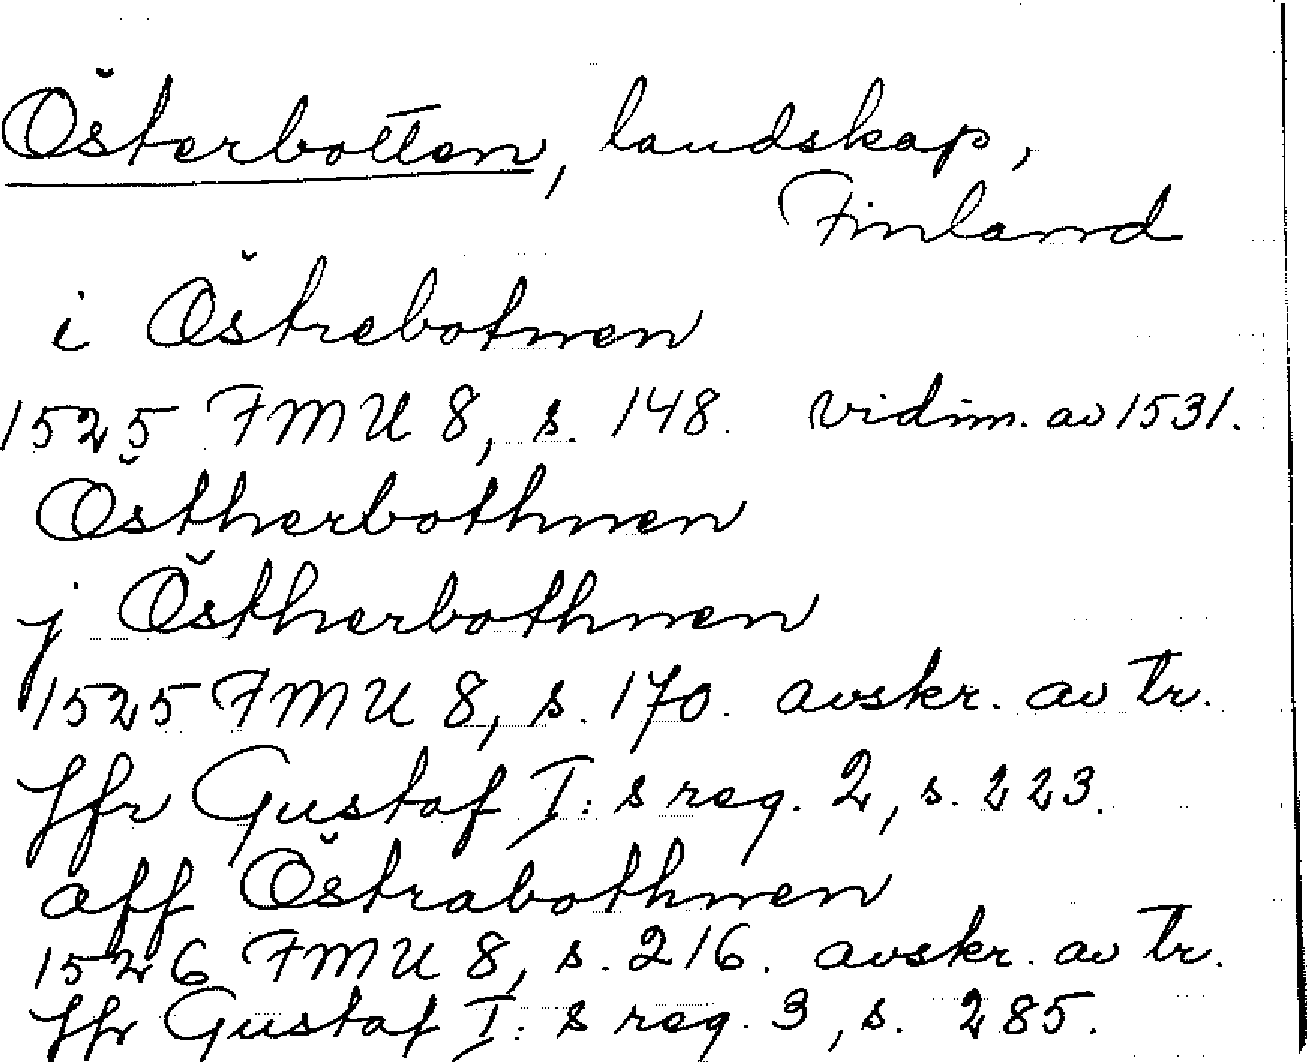 Österbotten, landskap,
Finland
i Östrebotnen
1525 FMU 8, s. 148. vidim. av 1531.
Östherbothnen
j Östherbothnen
1525 FMU 8, s. 170. avskr. av tr.
Jfr Gustaf I:s reg. 2, s. 223.
aff Östrabothnen
1526 FMU 8, s. 216. avskr. av tr.
Jfr Gustaf I:s reg. 3, s. 285.